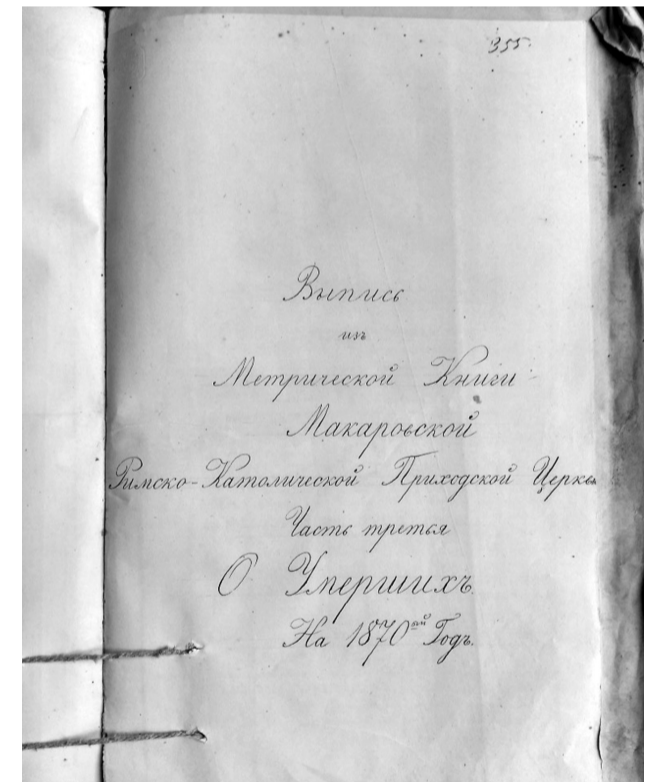 355.
Выпись
изъ
Метрической Книги
Макаровской
Римско-Католической Приходской Церкви
Часть третья
О Умершихъ.
На 1870ый Годъ.